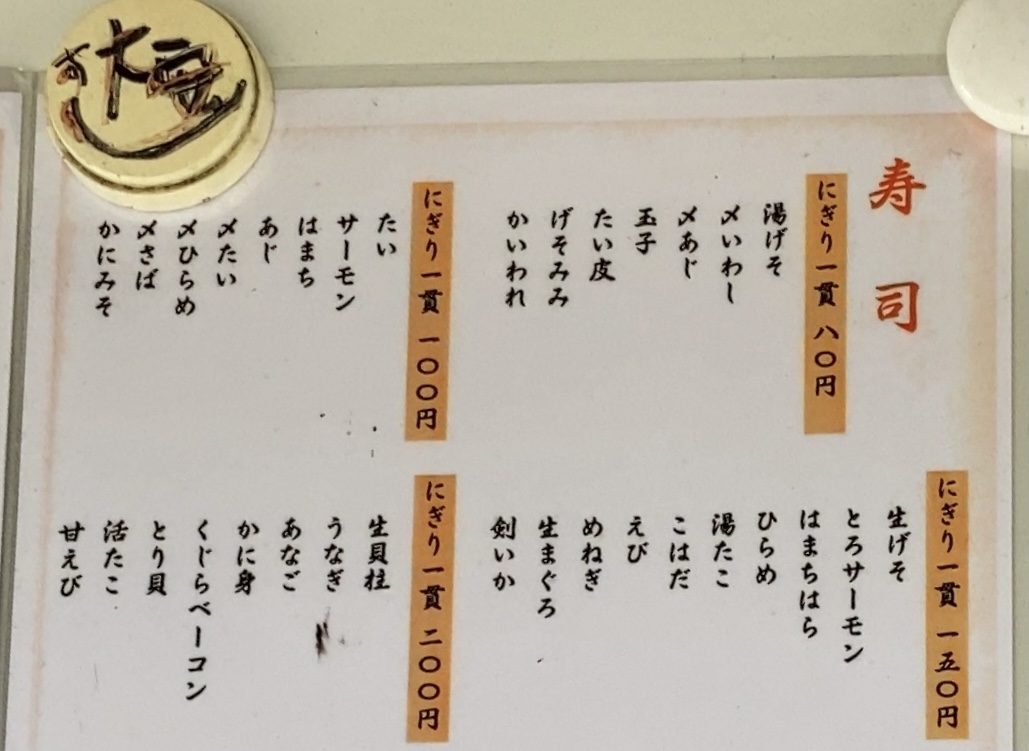 寿司
にぎり一貫 八〇円
湯げそ
〆いわし
〆あじ
玉子
たい皮
げそみみ
かいわれ
にぎり一貫 一〇〇円
たい
サーモン
はまち
あじ
〆たい
〆ひらめ
〆さば
かにみそ
にぎり一貫 一五〇円
生げそ
とろサーモン
はまちはら
ひらめ
湯たこ
こはだ
えび
めねぎ
生まぐろ
剣いか
にぎり一貫 二〇〇円
生貝柱
うなぎ
あなご
かに身
くじらベーコン
とり貝
活たこ
甘えび